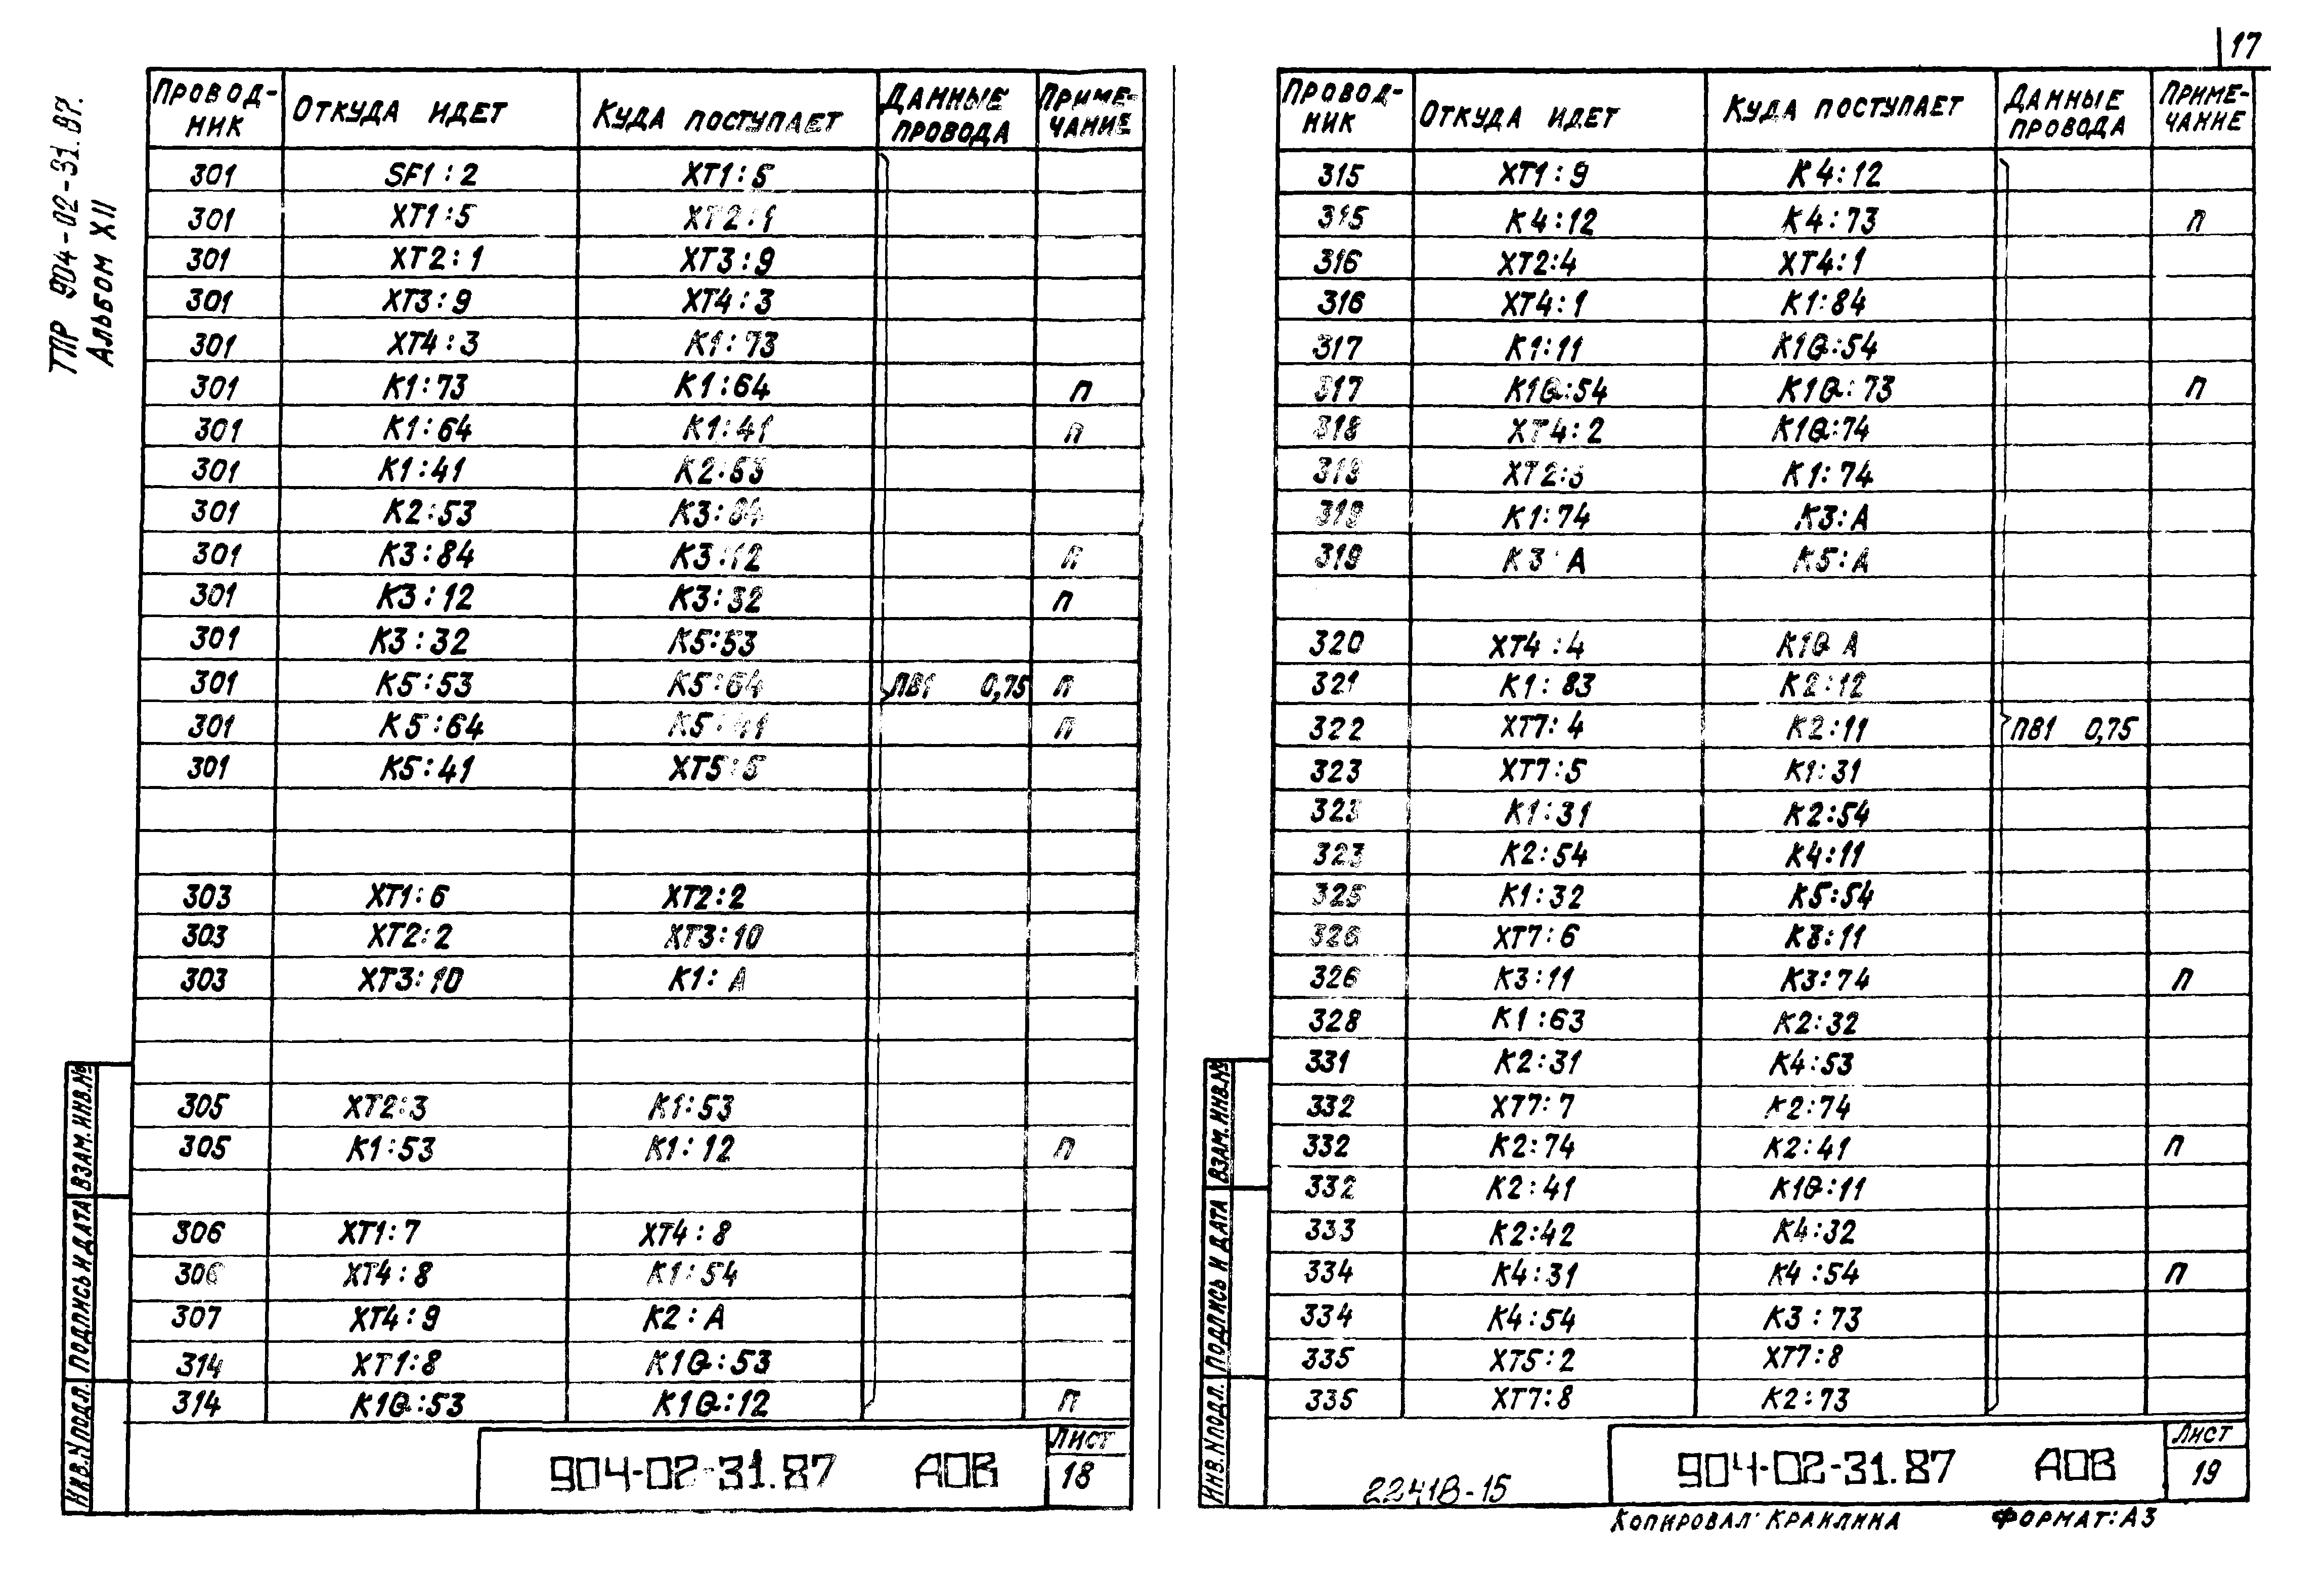 17
ТПР 904-02-31.87.
Альбом XII
Провод-ник Откуда идет Куда поступает Данные провода Приме-чание
301 SF1:2 XT1:5
301 XT1:5 XT2:1
301 XT2:1 XT3:9
301 XT3:9 XT4:3
301 XT4:3 K1:73
301 K1:73 K1:64 п
301 K1:64 K1:41 п
301 K1:41 K2:53
301 K2:53 K3:84
301 K3:84 K3:12 п
301 K3:12 K3:32 п
301 K3:32 K5:53
301 K5:53 K5:64 ПВ1 0,75 п
301 K5:64 K5:41 п
301 K5:41 XT5:5
303 XT1:6 XT2:2
303 XT2:2 XT3:10
303 XT3:10 K1:A
305 XT2:3 K1:53
305 K1:53 K1:12 п
306 XT1:7 XT4:8
306 XT4:8 K1:54
307 XT4:9 K2:A
314 XT1:8 K1Q:53
314 K1Q:53 K1Q:12 п
904-02-31.87 АОВ
Лист
18
Взам.инв.№
Подпись и дата
Инв.№подл.
Провод-ник Откуда идет Куда поступает Данные провода Приме-чание
315 XT1:9 K4:12
315 K4:12 K4:73 п
316 XT2:4 XT4:1
316 XT4:1 K1:84
317 K1:11 K1Q:54
317 K1Q:54 K1Q:73 п
318 XT4:2 K1Q:74
319 XT2:5 K1:74
319 K1:74 K3:A
319 K3:A K5:A
320 XT4:4 K1Q A
321 K1:83 K2:12
322 XT7:4 K2:11 ПВ1 0,75
323 XT7:5 K1:31
323 K1:31 K2:54
323 K2:54 K4:11
325 K1:32 K5:54
326 XT7:6 K3:11
326 K3:11 K3:74 п
328 K1:63 K2:32
331 K2:31 K4:53
332 XT7:7 K2:74
332 K2:74 K2:41 п
332 K2:41 K1Q:11
333 K2:42 K4:32
334 K4:31 K4:54 п
334 K4:54 K3:73
335 XT5:2 XT7:8
335 XT7:8 K2:73
904-02-31.87 АОВ
Лист
19
Взам.инв.№
Подпись и дата
Инв.№подл.
22418-15
Копировал: Краилина Формат: А3